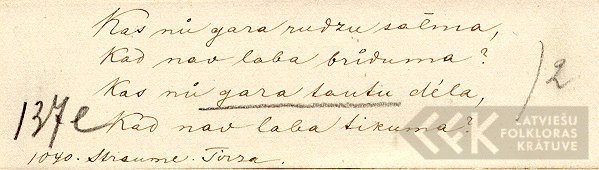 Kas nŭ gara rudzu salma,
Kad nav laba brīduma?
Kas nŭ gara tautu dēla,
Kad nav laba tikuma?
2
137e
1040. Straume. Tirza.
LATVIEŠU
FOLKLORAS
KRĀTUVE